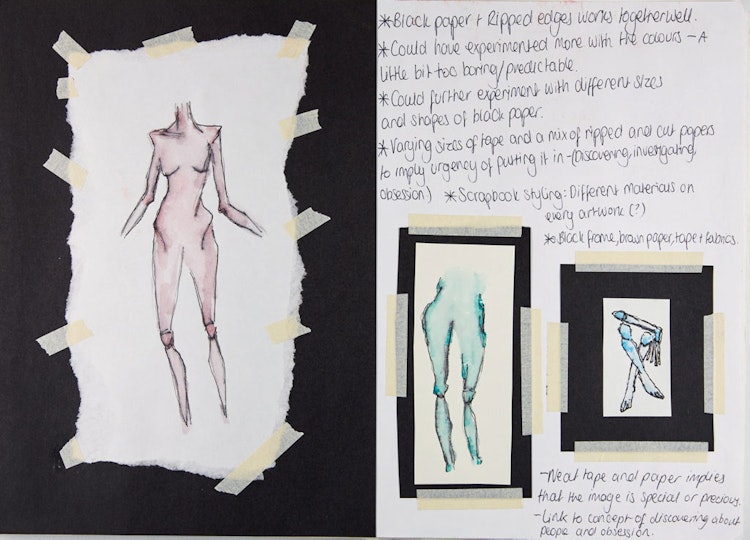 *Black paper + Ripped edges works together well.
*Could have experimented more with the colours – A
little bit too boring/predictable.
*Could further experiment with different sizes
and shapes of black paper.
*Varying sizes of tape and a mix of ripped and cut papers
to imply urgency of putting it in – (discovering, investigating,
obsession) *Scrapbook styling: Different materials on
every artwork (?)
*Black frame, brown paper, tape + fabrics.
-Neat tape and paper implies
that the image is special or precious.
-Link to concept of discovering about
people and obsession.